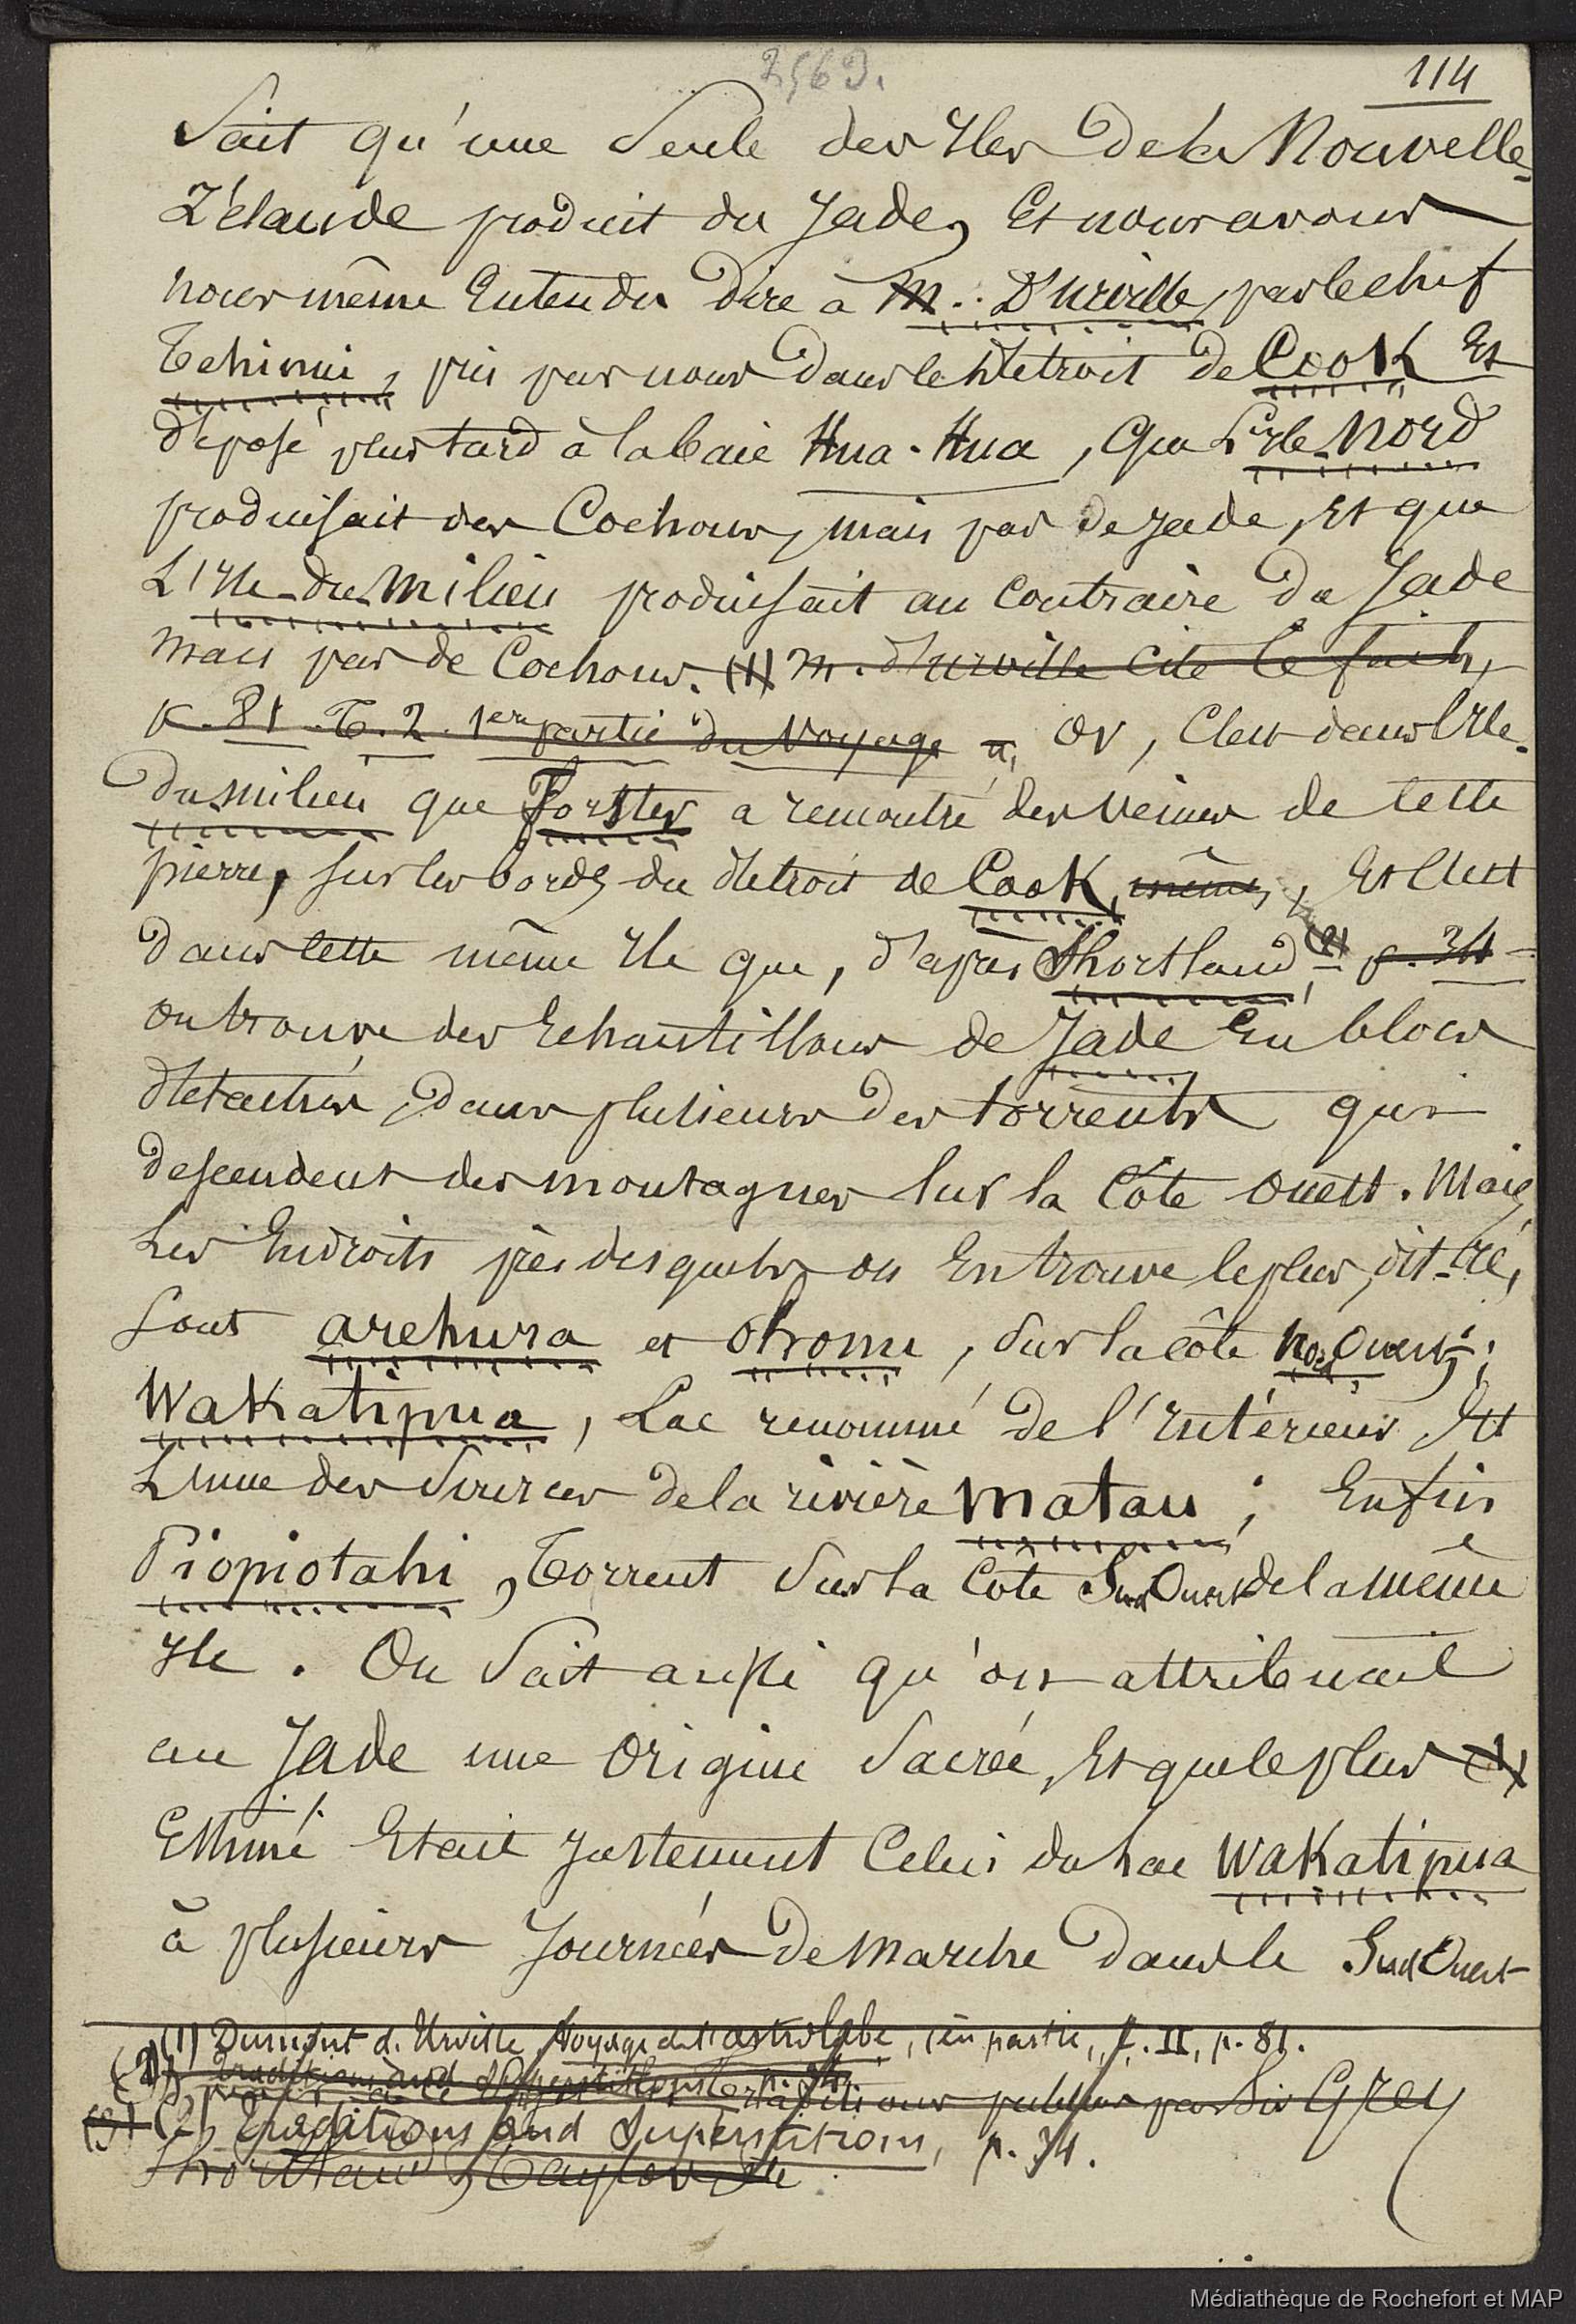 2569.
114
Sait qu'une Seule des Iles de la Nouvelle-
Zélande produit du Jade, Et nous avons
nous même Entendu dire à M. D'Urville, par le chef
Tehinui, pris par nous dans le détroit de Cook Et
déposé plus tard à la baie Hua-Hua, Que L'ile Nord
produisait des Cochons, mais pas de Jade, Et que
L'Ile-du-Milieu produisait au Contraire du Jade
mais pas de Cochons. (1) M. d'Urville Cite Ce fait,
p. 81 T. 2. 1ere partie du Voyage. Or, C'est dans l'Ile-
du-milieu que Forster a remontré des veines de Cette
pierre, sur les bords du détroit de Cook, même, Et C'est
dans Cette même Ile que, d'après Shortland, (2) p. 34
on trouve des Echantillons de Jade En blocs
détachés, dans plusieurs des torrents qui
descendent des montagnes Sur la Côte ouest. Mais
Les Endroits près desquels on En trouve le plus, dit-il,
Sont arehura et Ohomu, Sur la côte Nord Ouest;
Wakatipua, Lac renommé de l'Intérieur Et
L'une des Sources de la rivière Matau; Enfin
Piopiotahi, Torrent Sur la Côte Sud Ouest de la même
Ile. On Sait aussi qu'on attribuait
au Jade une Origine Sacrée, Et que le plus (1)
Estimé Etait Justement Celui du Lac Wakatipua
à plusieurs Journées de Marche dans le Sud Ouest
(1) Dumont d'Urville, Voyage de l'astrolabe, 1ère partie, t. II, p. 81.
(2) Traditions and Superstitions p. 34
traditions publiées par Sir Grey
(3) (2) Traditions and Superstitions, p. 34.
Shortland, Taylor, etc
Médiathèque de Rochefort et MAP